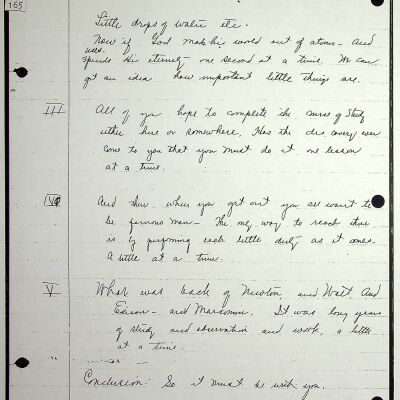 165
Little drops of water etc.
Now if God made his world out of atoms - And
uses
spends His eternity one second at a time. We can
get an idea how important little things are.
III All of you hope to complete the course of Study
either here or somewhere. Has the discovery ever
come to you that you must do it one lesson
at a time.
IV And then when you get out you all want to
be famous men - The only way to reach there
is by performing each little duty as it comes
A little at a time.
V What was back of Newton, and Watt, And
Edison - and Marconi. It was long years
of study and observation and work, a little
at a time.
Conclusion: So it must be with you.